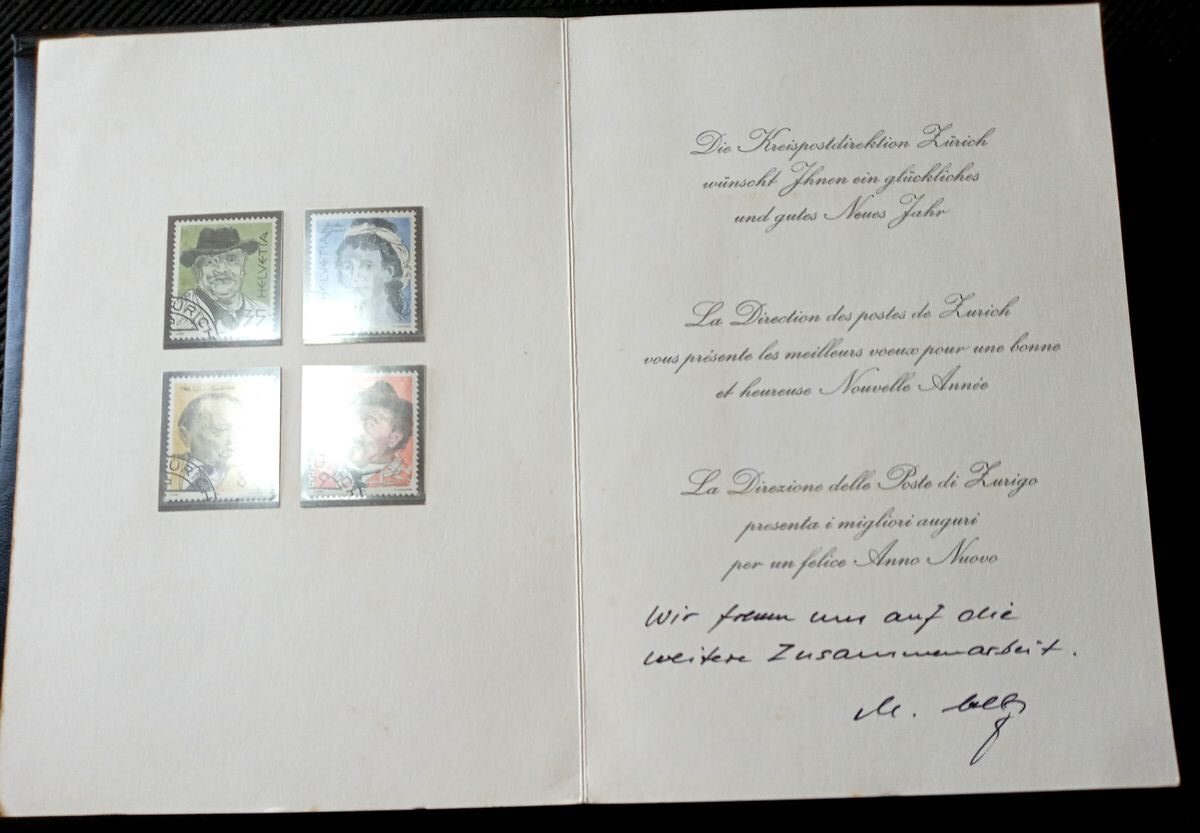 HELVETIA
ZÜRICH
HELVETIA
Die Kreispostdirektion Zürich
wünscht Ihnen ein glückliches
und gutes Neues Jahr
La Direction des postes de Zurich
vous présente les meilleurs voeux pour une bonne
et heureuse Nouvelle Année
La Direzione delle Poste di Zurigo
presenta i migliori auguri
per un felice Anno Nuovo
Wir freuen uns auf die
weitere Zusammenarbeit.
M.